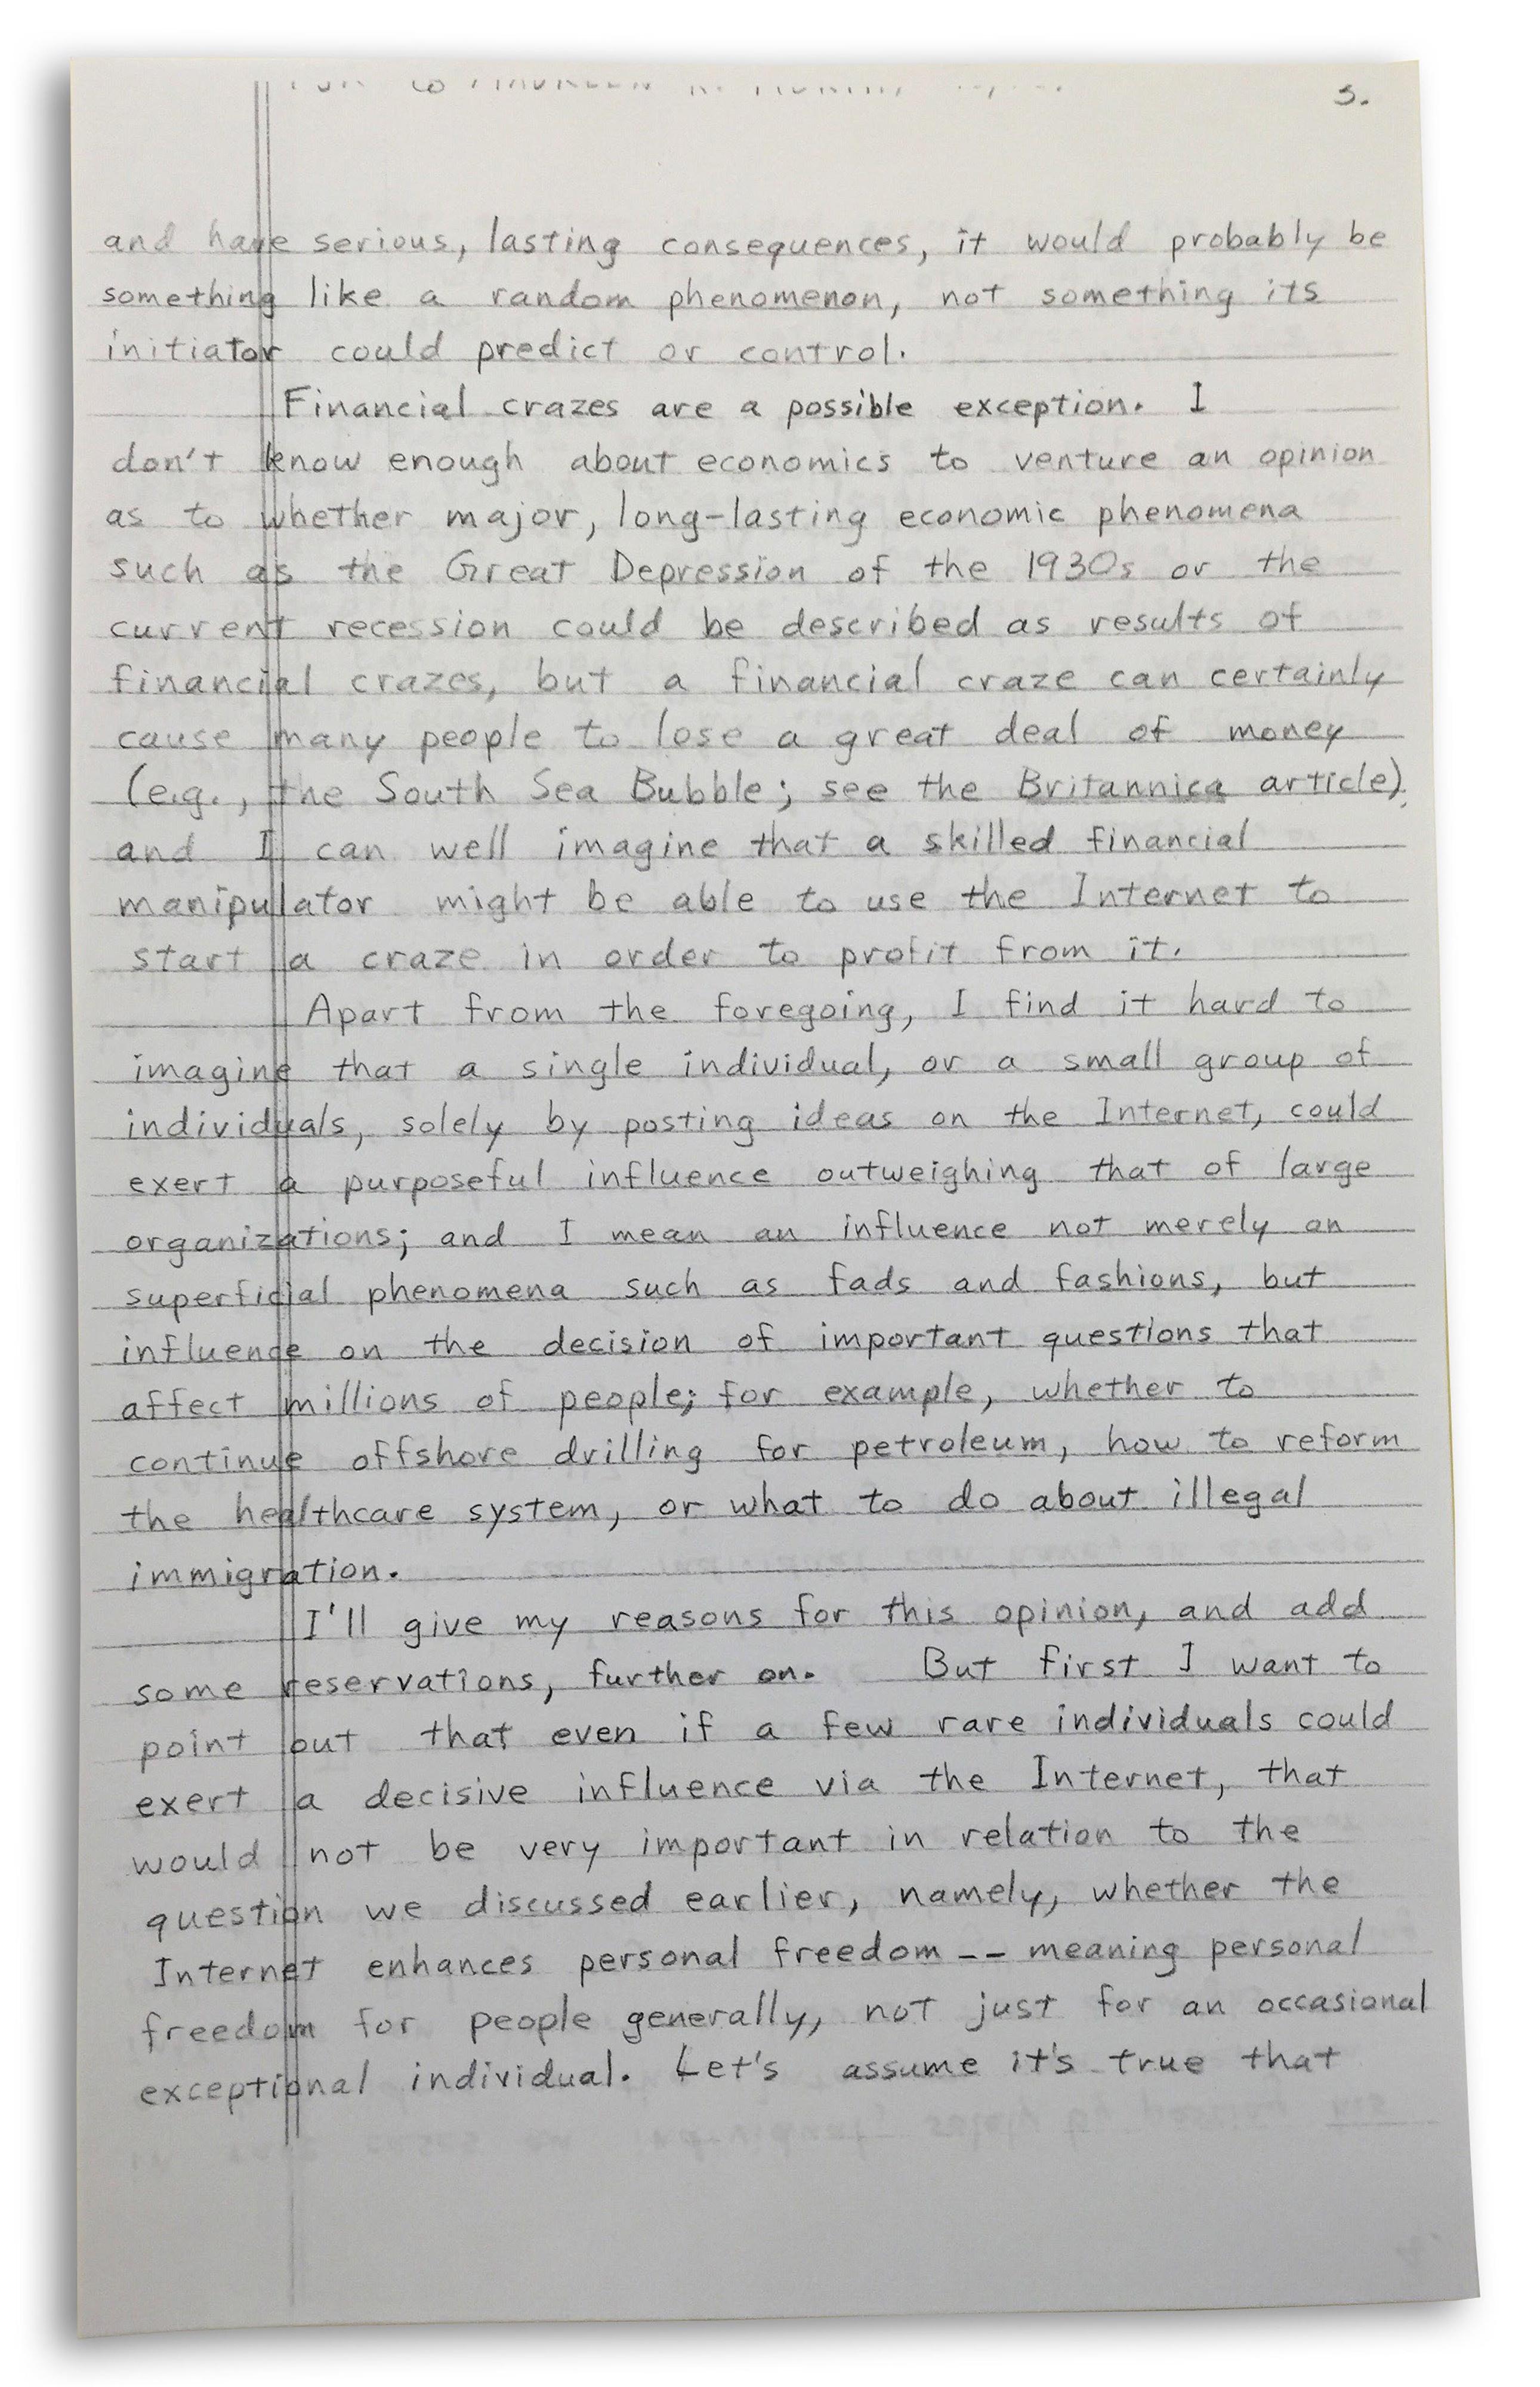 3.
and have serious, lasting consequences, it would probably be
something like a random phenomenon, not something its
initiator could predict or control.
Financial crazes are a possible exception. I
don't know enough about economics to venture an opinion
as to whether major, long-lasting economic phenomena
such as the Great Depression of the 1930s or the
current recession could be described as results of
financial crazes, but a financial craze can certainly
cause many people to lose a great deal of money
(e.g., the South Sea Bubble; see the Britannica article),
and I can well imagine that a skilled financial
manipulator might be able to use the Internet to
start a craze in order to profit from it.
Apart from the foregoing, I find it hard to
imagine that a single individual, or a small group of
individuals, solely by posting ideas on the Internet, could
exert a purposeful influence outweighing that of large
organizations; and I mean an influence not merely on
superficial phenomena such as fads and fashions, but
influence on the decision of important questions that
affect millions of people; for example, whether to
continue offshore drilling for petroleum, how to reform
the healthcare system, or what to do about illegal
immigration.
I'll give my reasons for this opinion, and add
some reservations, further on. But first I want to
point out that even if a few rare individuals could
exert a decisive influence via the Internet, that
would not be very important in relation to the
question we discussed earlier, namely, whether the
Internet enhances personal freedom -- meaning personal
freedom for people generally, not just for an occasional
exceptional individual. Let's assume it's true that